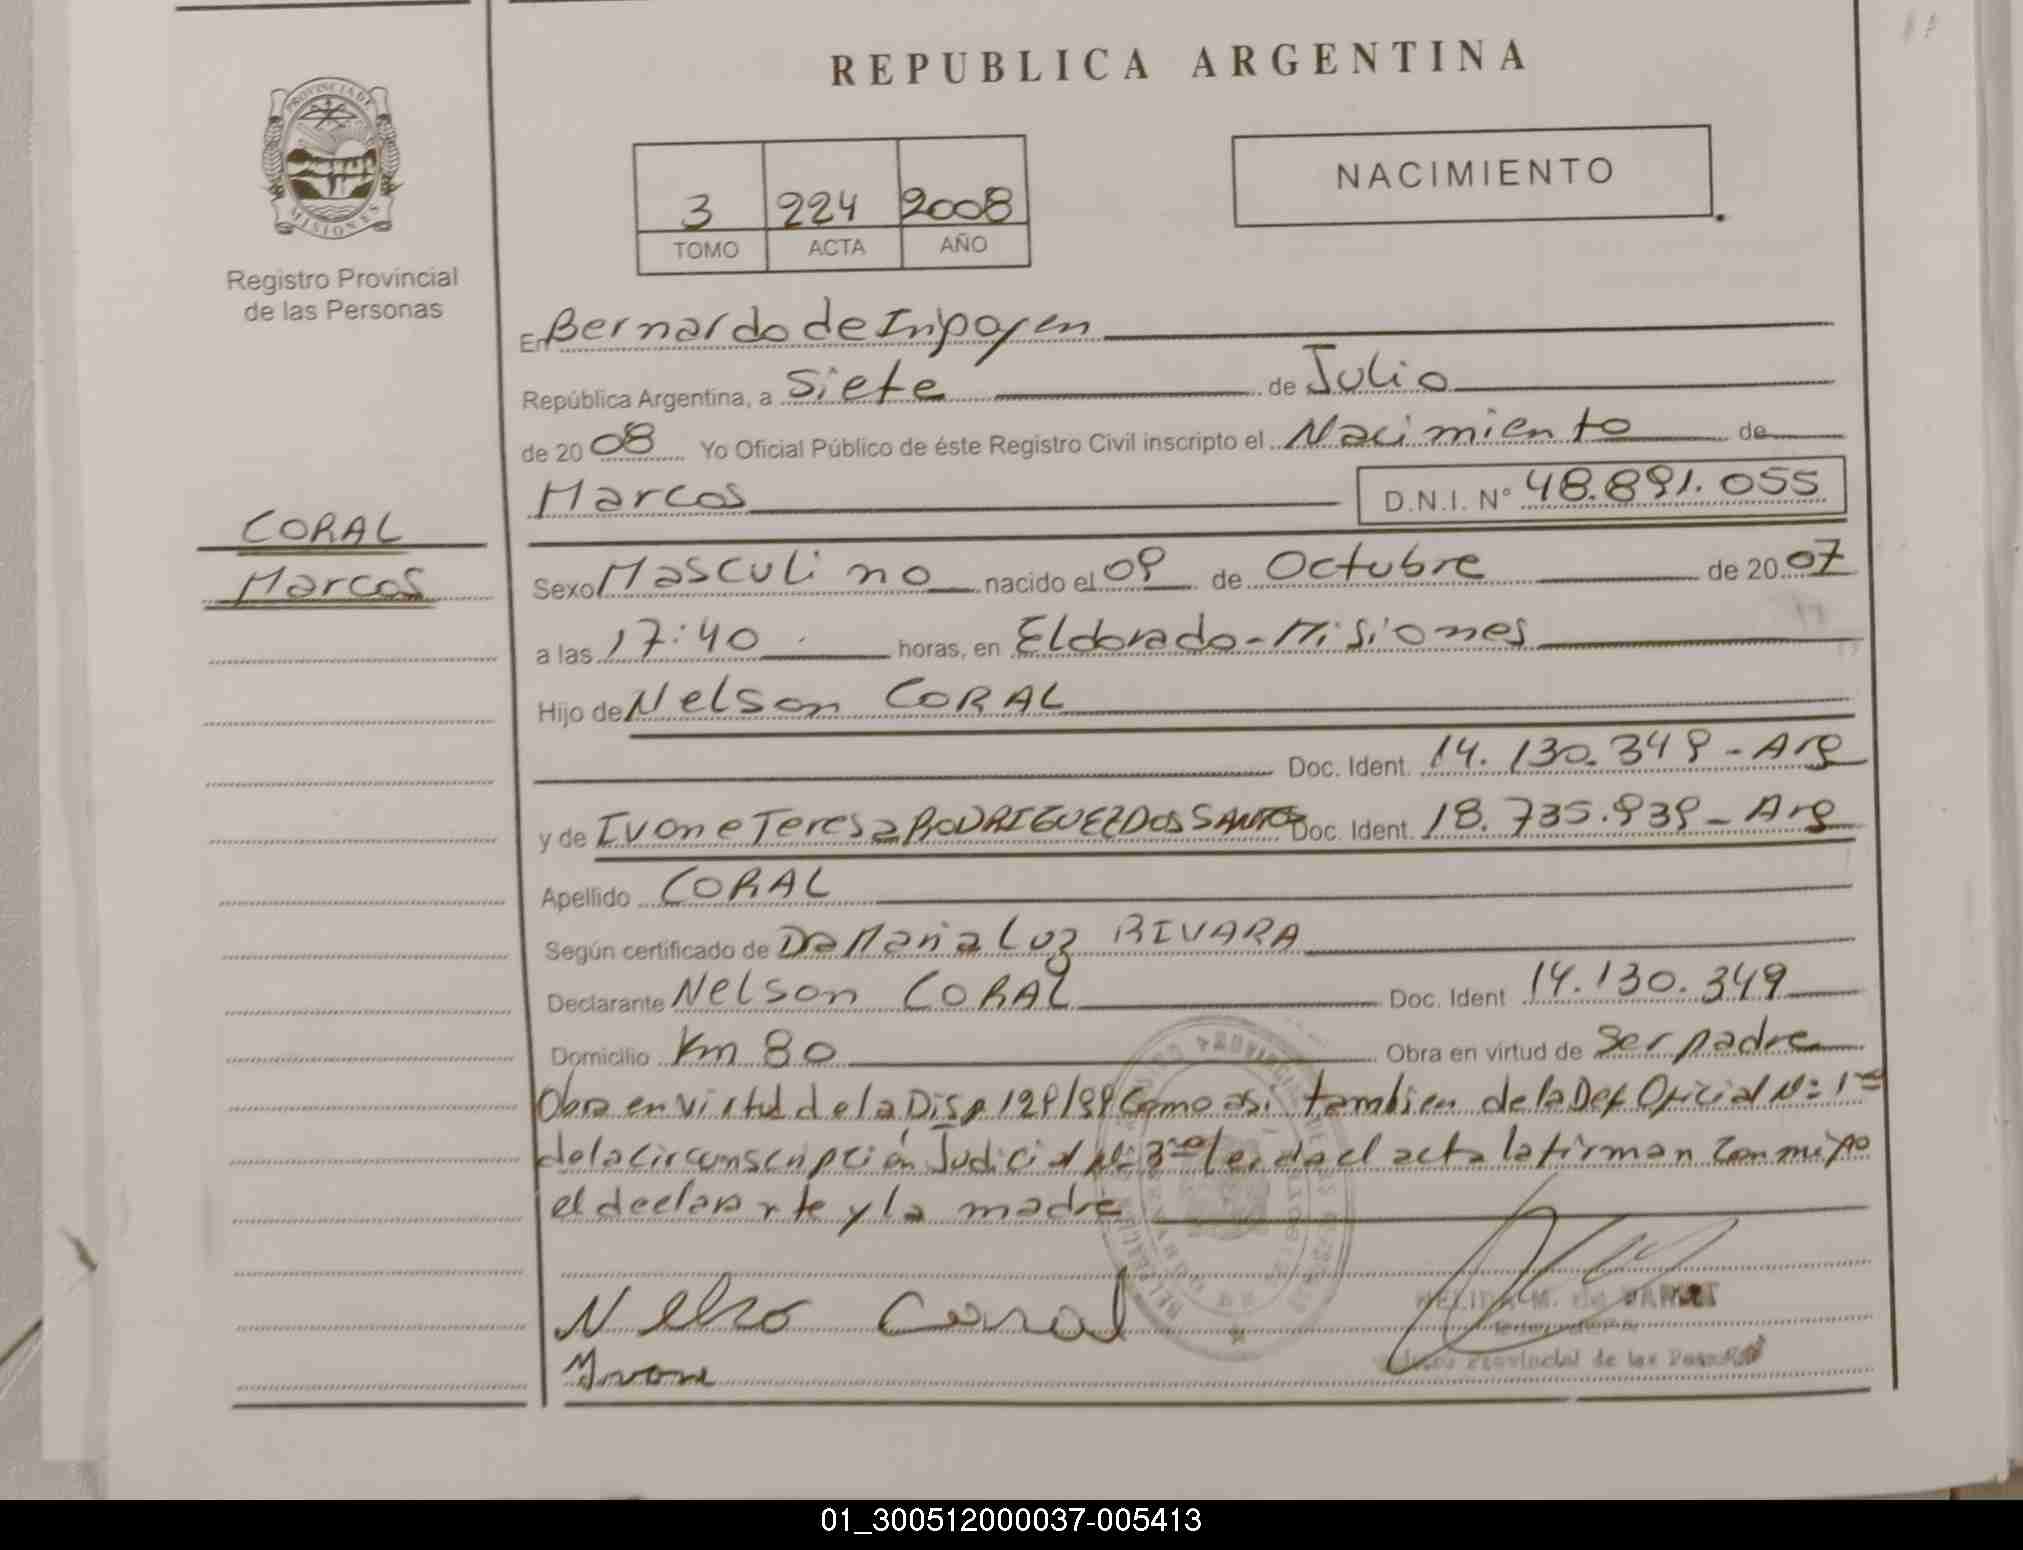 REPUBLICA ARGENTINA
PROVINCIA DE
MISIONES
Registro Provincial
de las Personas
3 224 2008
TOMO ACTA AÑO
NACIMIENTO
En Bernardo de Irigoyen
República Argentina, a Siete de Julio
de 20 08 Yo Oficial Público de éste Registro Civil inscripto el Nacimiento de
Marcos D.N.I. N° 48.891.055
CORAL
Marcos
Sexo Masculino nacido el 09 de Octubre de 20 07
a las 17:40 horas, en Eldorado - Misiones
Hijo de Nelson CORAL
Doc. Ident. 14.130.349 - Arg
y de Ivone Teresa RODRIGUEZ DOS SANTOS Doc. Ident. 18.735.939 - Arg
Apellido CORAL
Según certificado de Da Maria Luz RIVARA
Declarante Nelson CORAL Doc. Ident 14.130.349
Domicilio Km 80 Obra en virtud de Ser padre
Obra en virtud de la Disp 129/99 Como asi tambien de la Def Oficial N° 1
de la circunscripción Judicial leida el acta la firman conmigo
el declarante y la madre
Nelso Coral
Ivone
Provincial de las
01_300512000037-005413